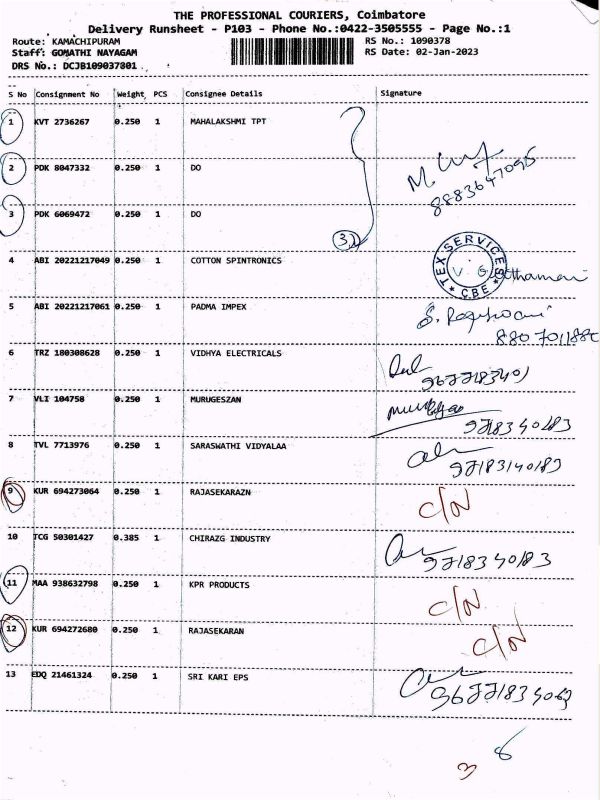 THE PROFESSIONAL COURIERS, Coimbatore
Delivery Runsheet - P103 - Phone No.:0422-3505555 - Page No.:1
Route: KAMACHIPURAM RS No.: 1090378
Staff: GOMATHI NAYAGAM RS Date: 02-Jan-2023
DRS No.: DCJB109037801
S No Consignment No Weight PCS Consignee Details Signature
1 KVT 2736267 0.250 1 MAHALAKSHMI TPT
2 PDK 8047332 0.250 1 DO
8883647095
3 PDK 6069472 0.250 1 DO
3
4 ABI 20221217049 0.250 1 COTTON SPINTRONICS
TEX SERVICES * CBE *
5 ABI 20221217061 0.250 1 PADMA IMPEX
6 TRZ 180308628 0.250 1 VIDHYA ELECTRICALS
7 VLI 104758 0.250 1 MURUGESZAN
8 TVL 7713976 0.250 1 SARASWATHI VIDYALAA
9 KUR 694273064 0.250 1 RAJASEKARAZN C/N
10 TCG 50301427 0.385 1 CHIRAZG INDUSTRY
11 MAA 938632798 0.250 1 KPR PRODUCTS C/N
12 KUR 694272680 0.250 1 RAJASEKARAN C/N
13 EDQ 21461324 0.250 1 SRI KARI EPS
3 8